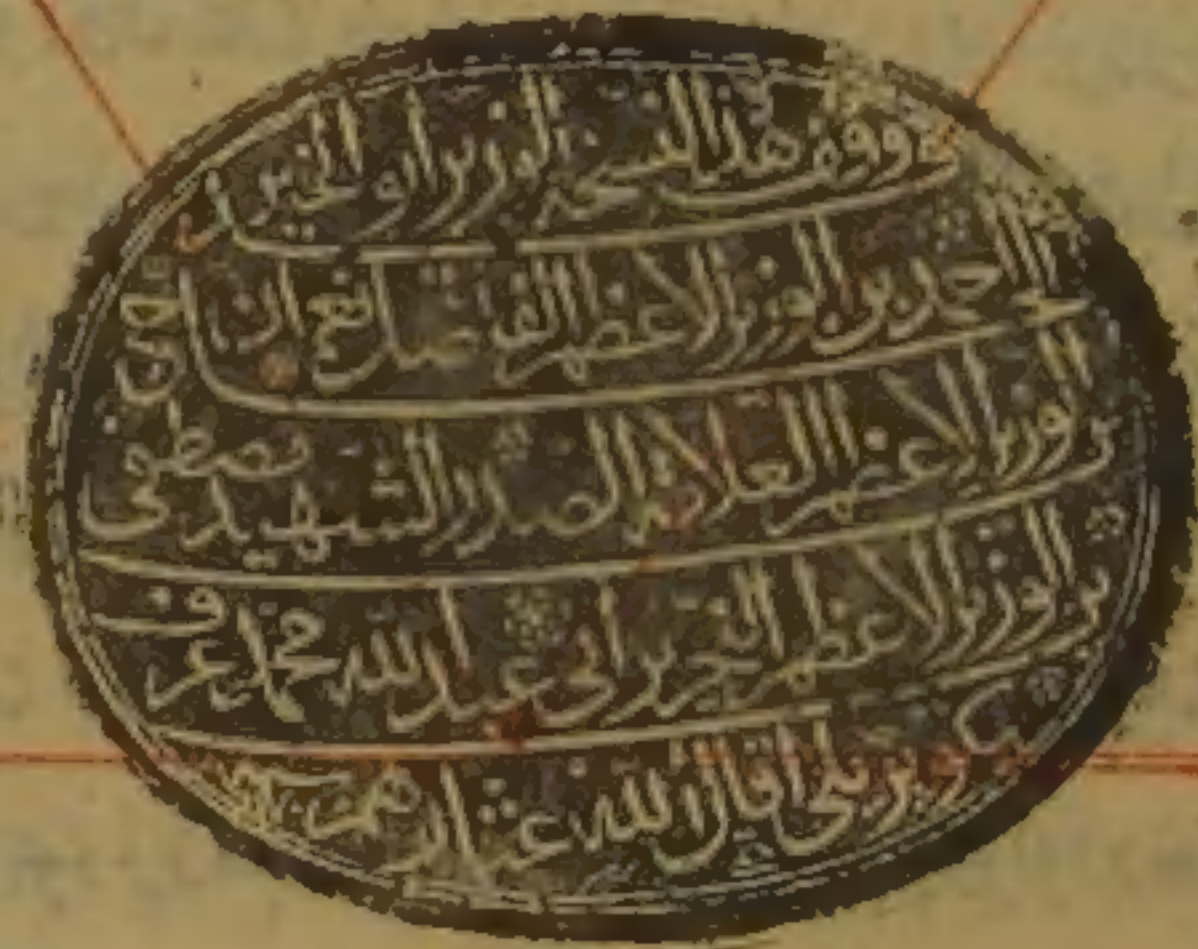 وقف هذا النسخة الوزير ابو الخير
احمد بن الوزير الاعظم الفاضل نعمان
بن الوزير الاعظم العلامة الصدر الشهيد مصطفى
بن الوزير الاعظم النحرير ابى عبد الله محمد عرف
بكوبريلى اقال الله عثارهم